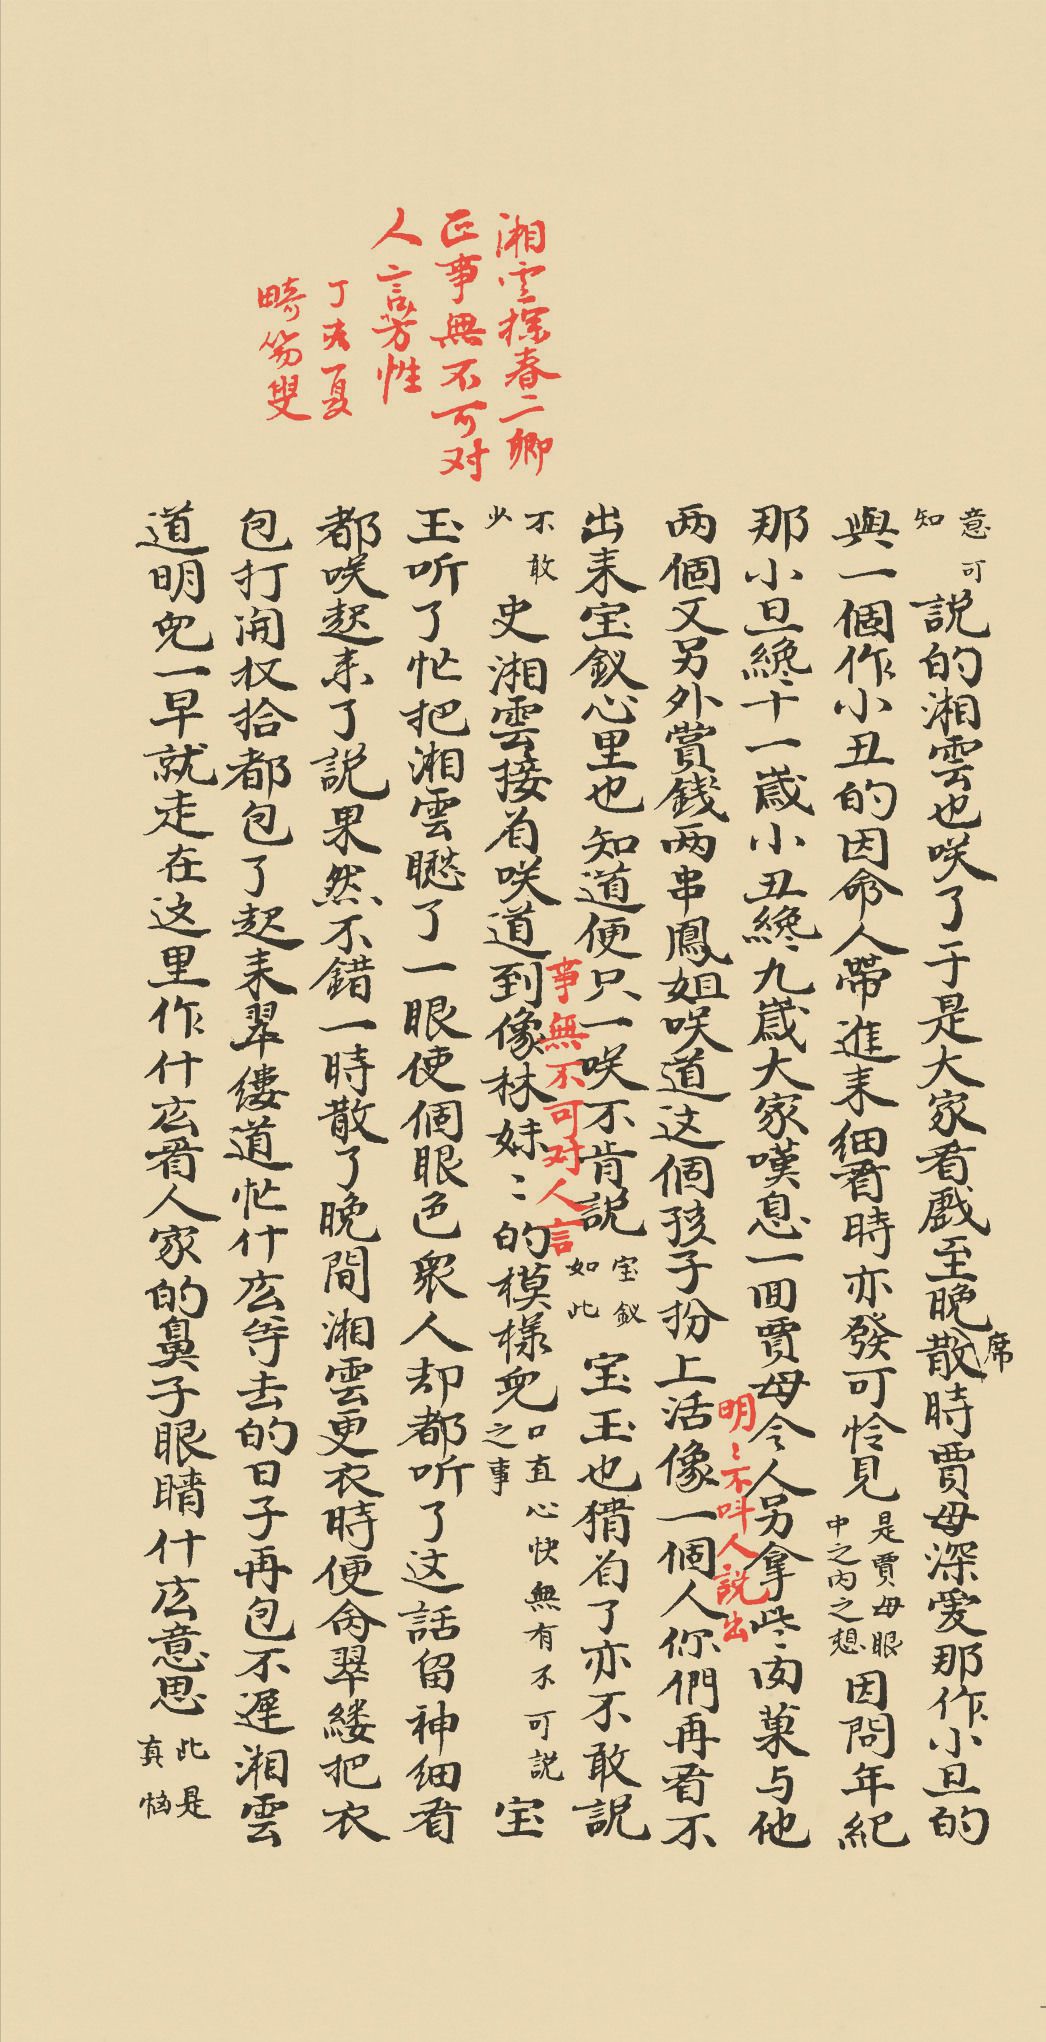 湘雲探春二卿
正事無不可对
人言芳性
丁亥夏
畸笏叟
意可
知
説的湘雲也咲了于是大家看戲至晚散時賈母深愛那作小旦的
席
與一個作小丑的因命人帶進来細看時亦發可怜見
是賈母眼
中之内之想
因問年紀
那小旦纔十一歳小丑纔九歳大家嘆息一回賈母令人另拿些肉菓与他
明〻不叫人説出
两個又另外賞錢两串鳳姐咲道这個孩子扮上活像一個人你們再看不
出来宝釵心里也知道便只一咲不肯説
宝釵
如此
宝玉也猜着了亦不敢説
事無不可对人言
不敢
少
史湘雲接着咲道到像林妹〻的模様兒
口直心快無有不可説
之事
宝
玉听了忙把湘雲瞅了一眼使個眼色衆人却都听了这話留神細看
都咲起来了説果然不錯一時散了晚間湘雲更衣時便命翠縷把衣
包打開收拾都包了起来翠縷道忙什広等去的日子再包不遲湘雲
道明兒一早就走在这里作什広看人家的鼻子眼睛什広意思
此是
真恼